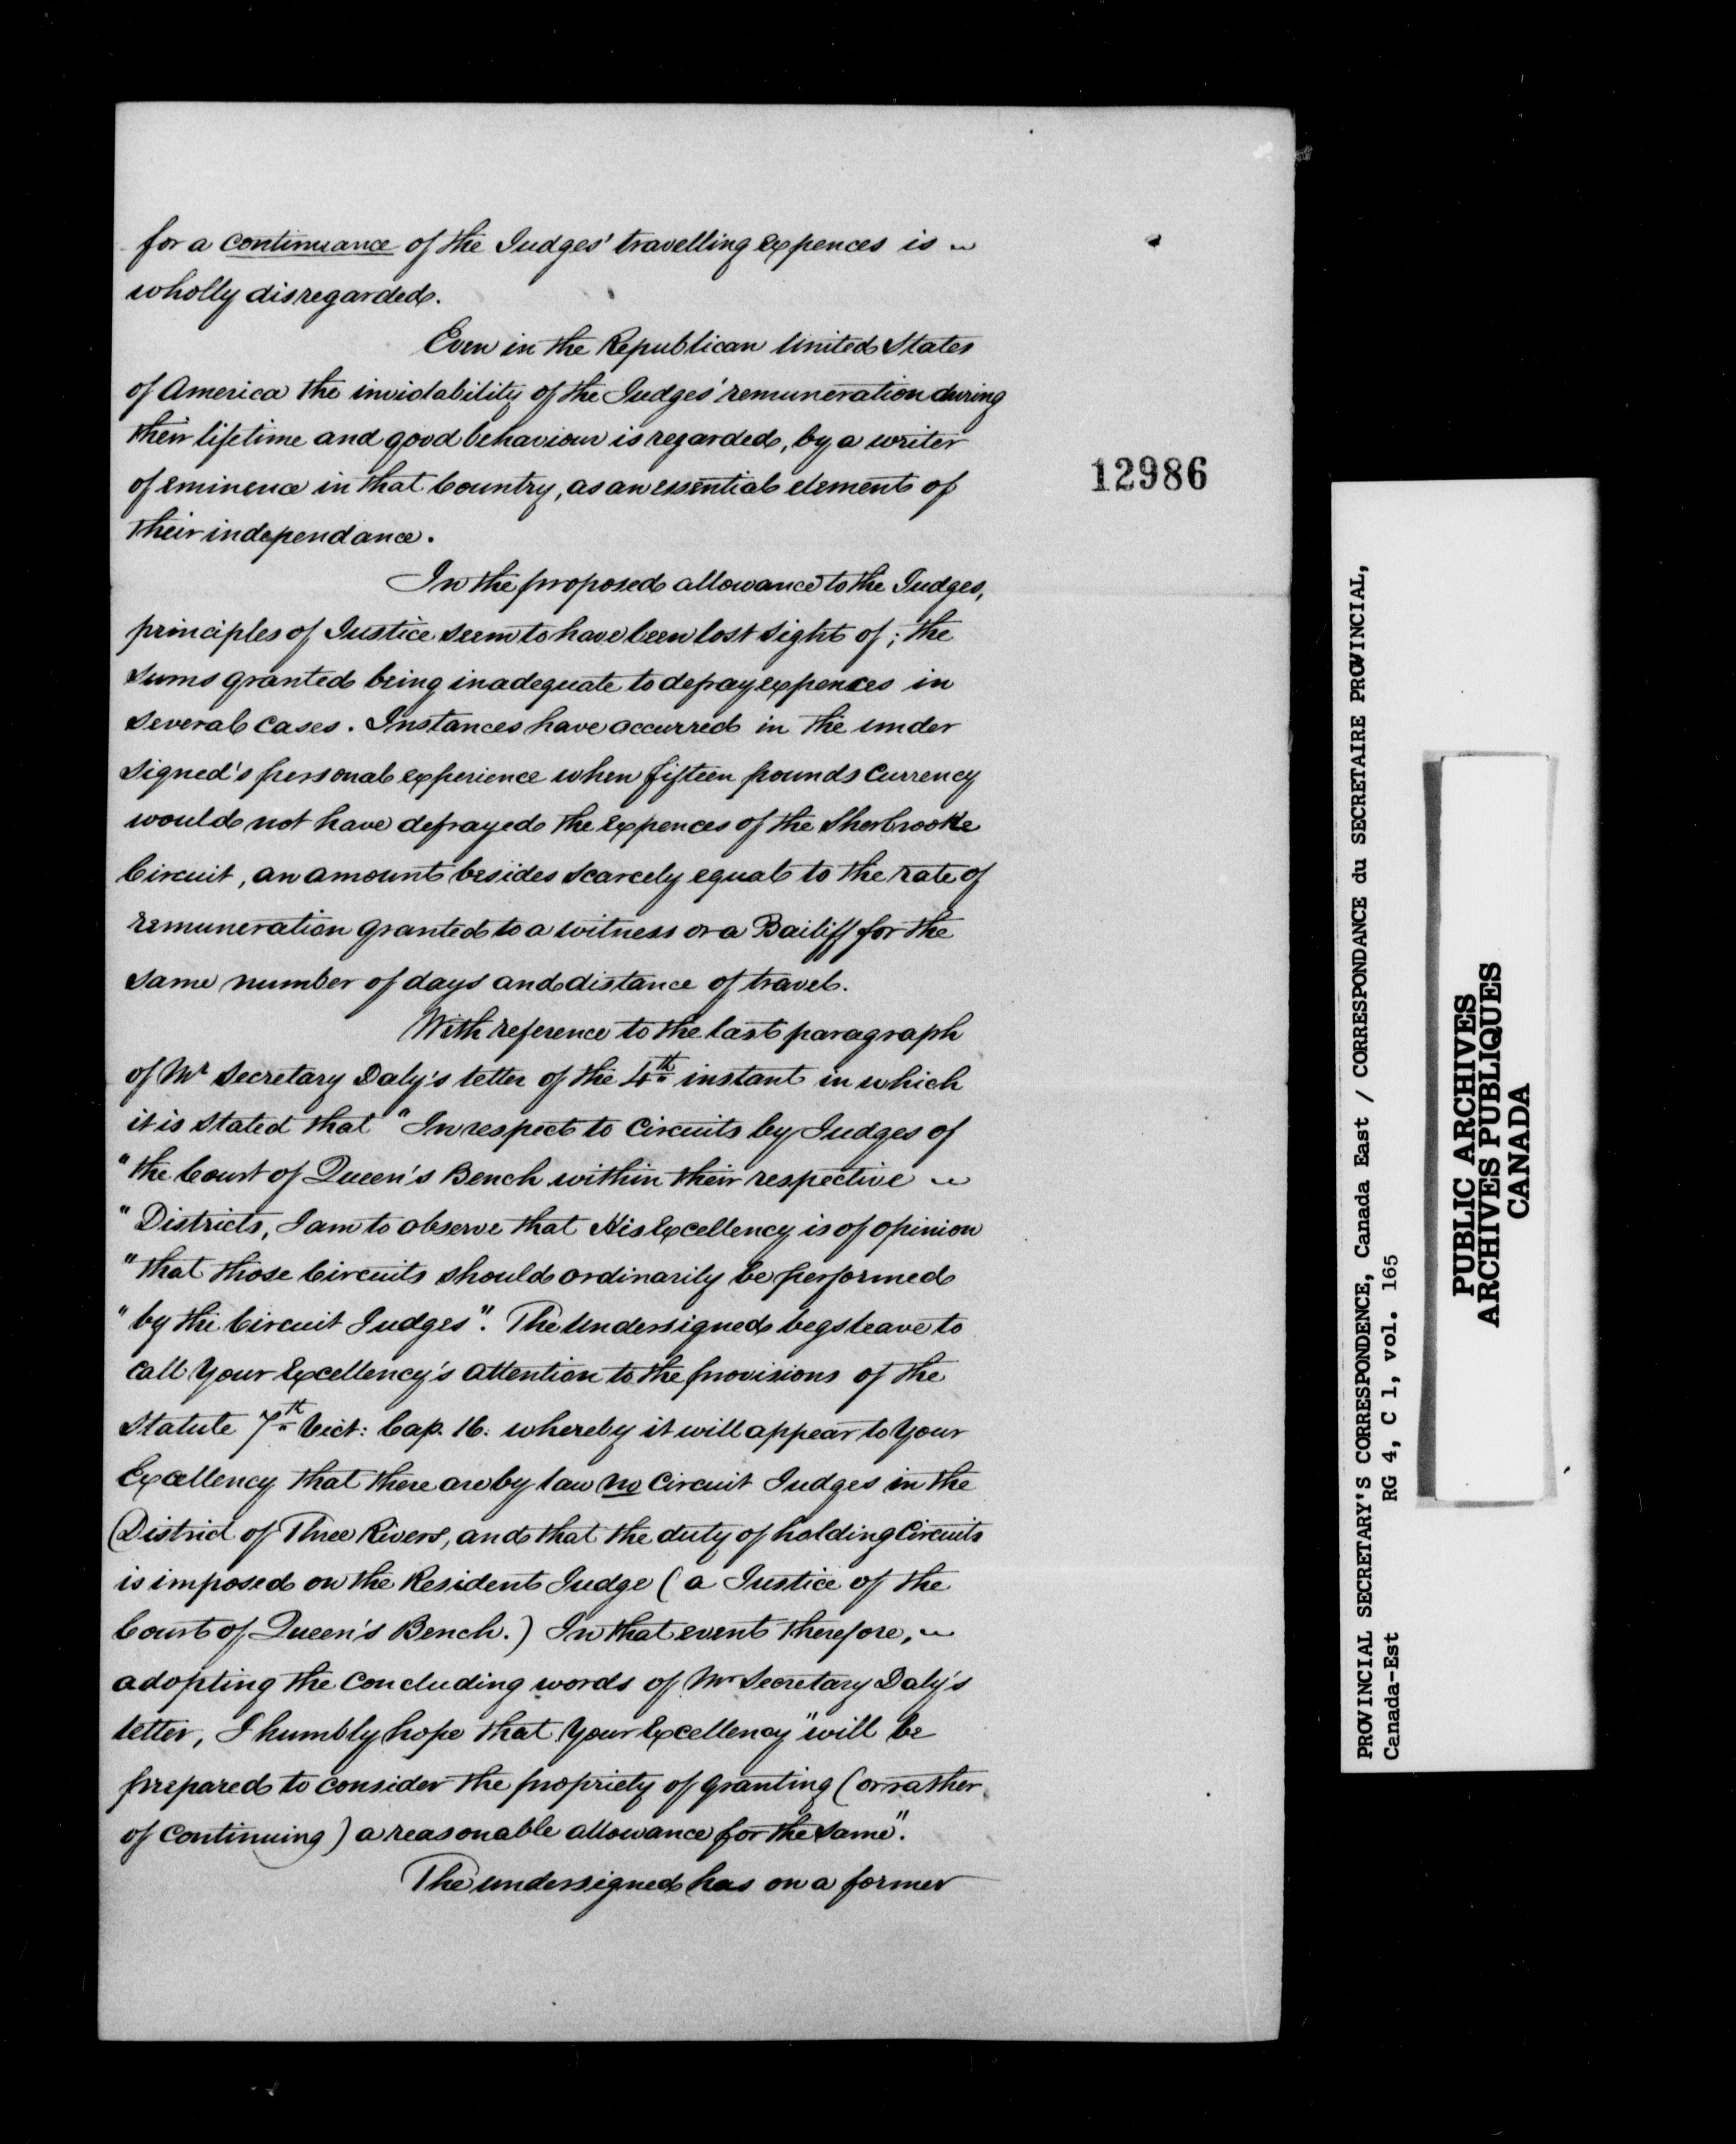 for a continuance of the Judges' travelling expences is
wholly disregarded.
Even in the Republican United States
of America the inviolability of the Judges' remuneration during
their lifetime and good behaviour is regarded, by a writer
of eminence in that Country, as an essential element of
their independance.
In the proposed allowance to the Judges,
principles of Justice seem to have been lost sight of; the
sums granted being inadequate to defray expences in
several cases. Instances have occurred in the under
signed's personal experience when fifteen pounds Currency
would not have defrayed the expences of the Sherbrooke
Circuit, an amount besides scarcely equal to the rate of
remuneration granted to a witness or a Bailiff for the
same number of days and distance of travel.
With reference to the last paragraph
of Mr Secretary Daly's letter of the 4th instant in which
it is stated that "In respect to Circuits by Judges of
"the Court of Queen's Bench within their respective
"Districts, I am to observe that His Excellency is of opinion
"that those Circuits should ordinarily be performed
"by the Circuit Judges". The Undersigned begs leave to
call Your Excellency's attention to the provisions of the
Statute 7th Vict: Cap. 16. whereby it will appear to Your
Excellency that there are by law no Circuit Judges in the
District of Three Rivers, and that the duty of holding Circuits
is imposed on the Resident Judge (a Justice of the
Court of Queen's Bench.) In that event therefore,
adopting the concluding words of Mr Secretary Daly's
letter, I humbly hope that Your Excellency "will be
prepared to consider the propriety of granting (or rather
of continuing) a reasonable allowance for the same".
The undersigned has on a former
12986
PROVINCIAL SECRETARY'S CORRESPONDENCE, Canada East / CORRESPONDANCE du SECRETAIRE PROVINCIAL,
Canada-Est RG 4, C 1, vol. 165
PUBLIC ARCHIVES
ARCHIVES PUBLIQUES
CANADA